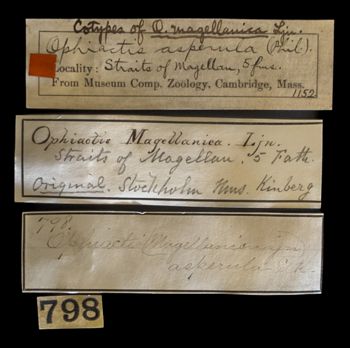 Cotypes of O. magellanica Ljn.
Ophiactis asperula (Phil).
Locality: Straits of Magellan, 5 fms.
From Museum Comp. Zoology, Cambridge, Mass.
1152
Ophiactis Magellanica. Ljn.
Straits of Magellan. 5 Fath.
Original. Stockholm Mus. Kinberg
798.
asperula
798